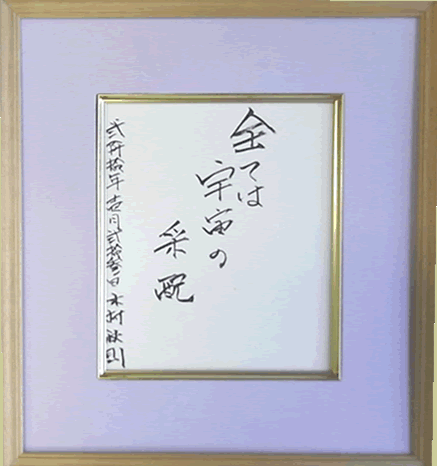 全ては
宇宙の
采配
弐仟拾年壱月弐拾参日 木村秋則